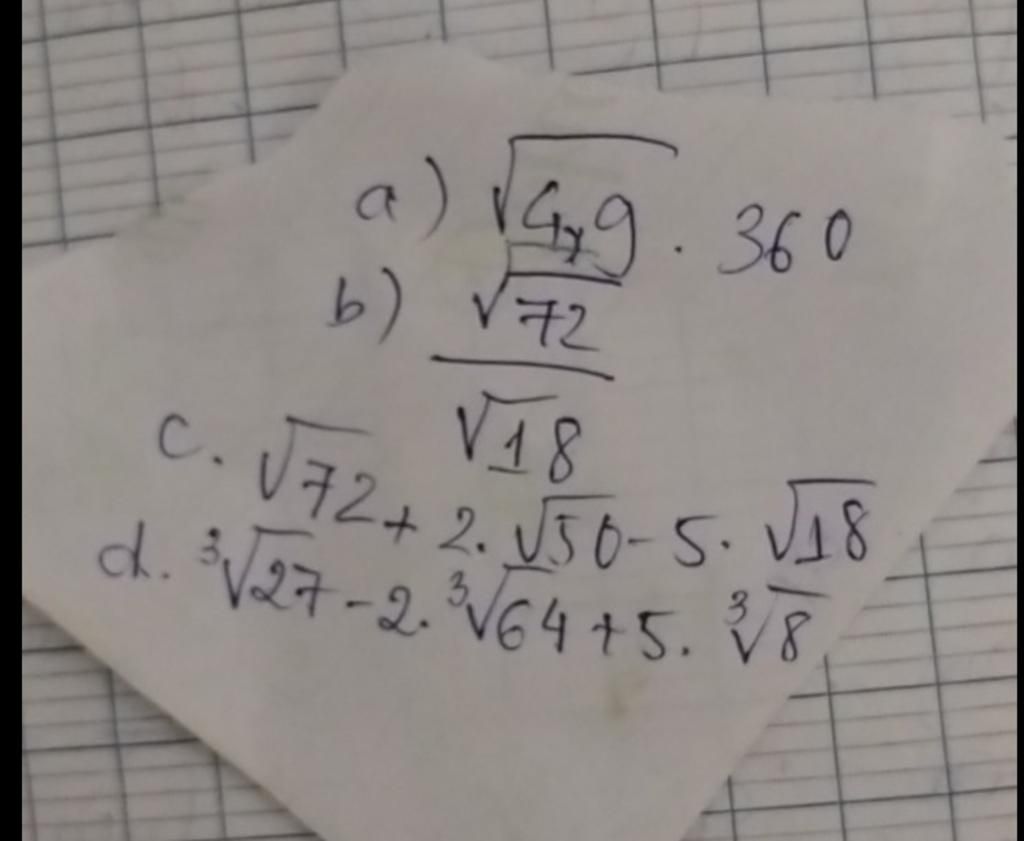 a) √4,9 . 360
b) √72 / √18
c. √72 + 2. √50 - 5. √18
d. ³√27 - 2. ³√64 + 5. ³√8